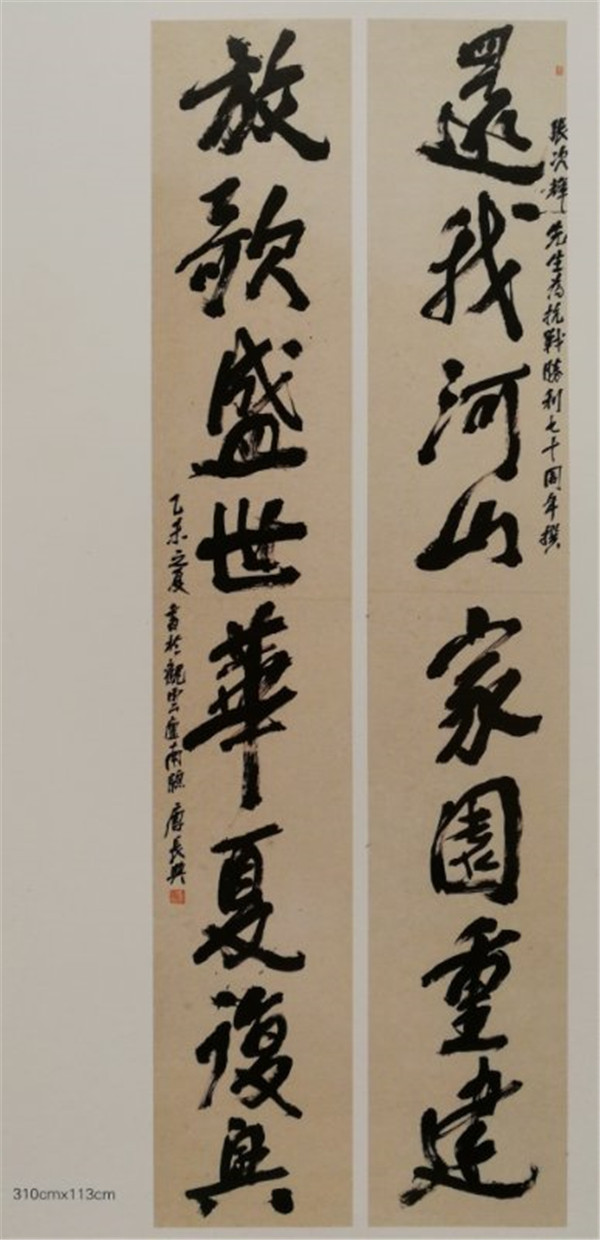 張次輝先生為抗戰勝利七十周年撰
還我河山家園重建
放歌盛世華夏復興
乙未之夏書於觀雲廬南牕唐長興
310cmx113cm